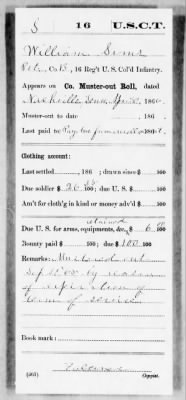 S 16 U.S.C.T.
William Sims
Pvt., Co. B, 16 Reg't U.S. Col'd Infantry.
Appears on Co. Muster-out Roll, dated
Nashville Tenn Apr 30, 1866.
Muster-out to date , 186 .
Last paid to , 186 .
Clothing account:
Last settled , 186 ; drawn since $ 100
Due soldier $ 26 35/100; due U.S. $ 100
Am't for cloth'g in kind or money adv'd $ 100
retained
Due U.S. for arms, equipments, &c., $ 6 00/100
Bounty paid $ 100; due $ 100 100
Remarks: Mustered out
by reason
of expiration of
term of service
Book mark:
(361) Copyist.